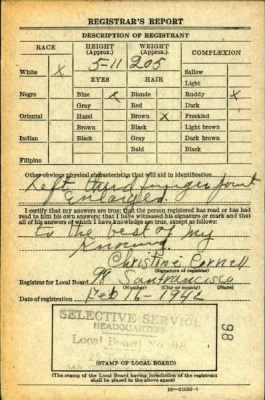 REGISTRAR'S REPORT
DESCRIPTION OF REGISTRANT
RACE
HEIGHT (Approx.)
WEIGHT (Approx.)
COMPLEXION
White X
5-11
205
Sallow
Light
EYES
HAIR
Negro
Blue X
Blonde
Ruddy X
Gray
Red
Dark
Oriental
Hazel
Brown X
Freckled
Brown
Black
Light brown
Indian
Black
Gray
Dark brown
Bald
Black
Filipino
Other obvious physical characteristics that will aid in identification
Left third finger joint
enlarged
I certify that my answers are true; that the person registered has read or has had
read to him his own answers; that I have witnessed his signature or mark and that
all of his answers of which I have knowledge are true, except as follows:
to the best of my
knowing.
Christine Connell
(Signature of registrar)
Registrar for Local Board 98 San Francisco
(Number) (City or county) (State)
Date of registration Feb 16 - 1942
SELECTIVE SERVICE
HEADQUARTERS
Local Board No. 98
98
(STAMP OF LOCAL BOARD)
(The stamp of the Local Board having jurisdiction of the registrant
shall be placed in the above space)